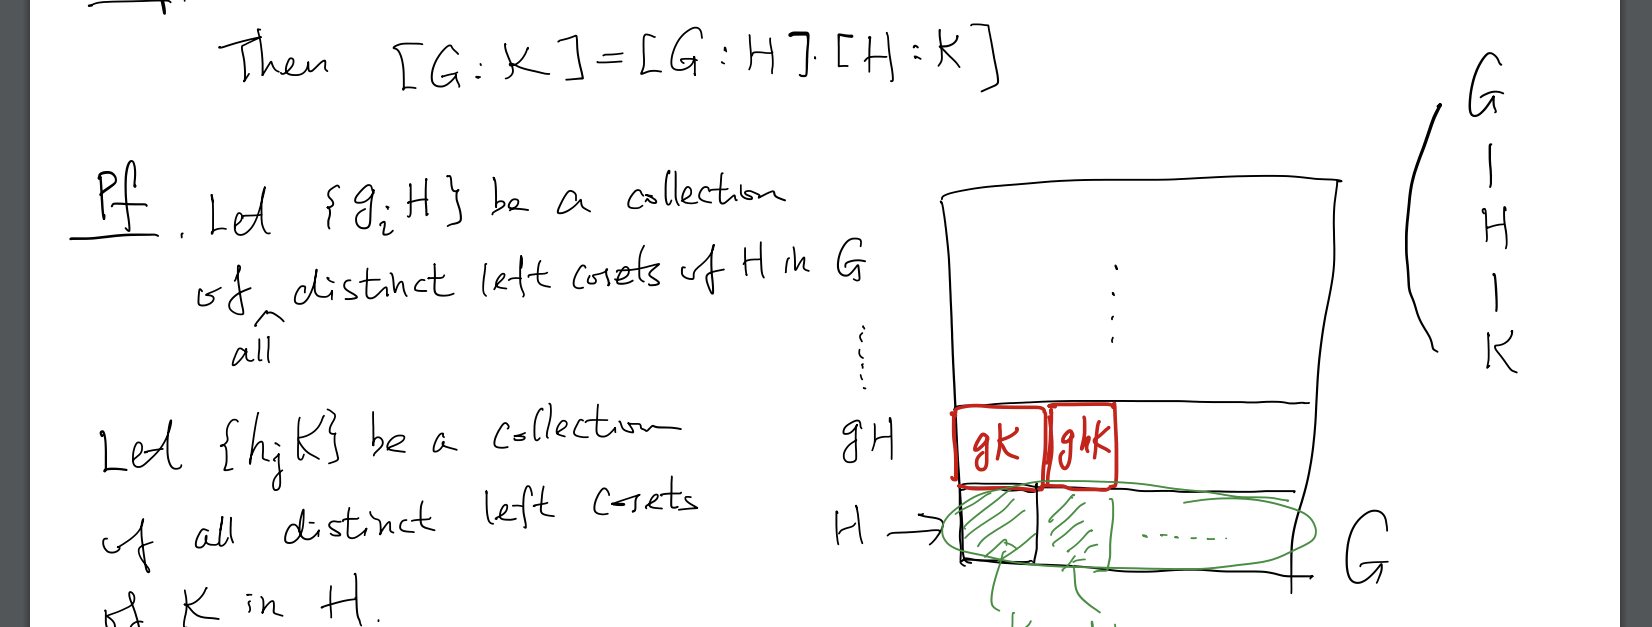 Then [G:K]=[G:H].[H:K]
Pf. Let {gᵢH} be a collection
of distinct left cosets of H in G
all
Let {hⱼK} be a collection
of all distinct left cosets
of K in H.
gH
gK
ghK
H
G
G
H
K